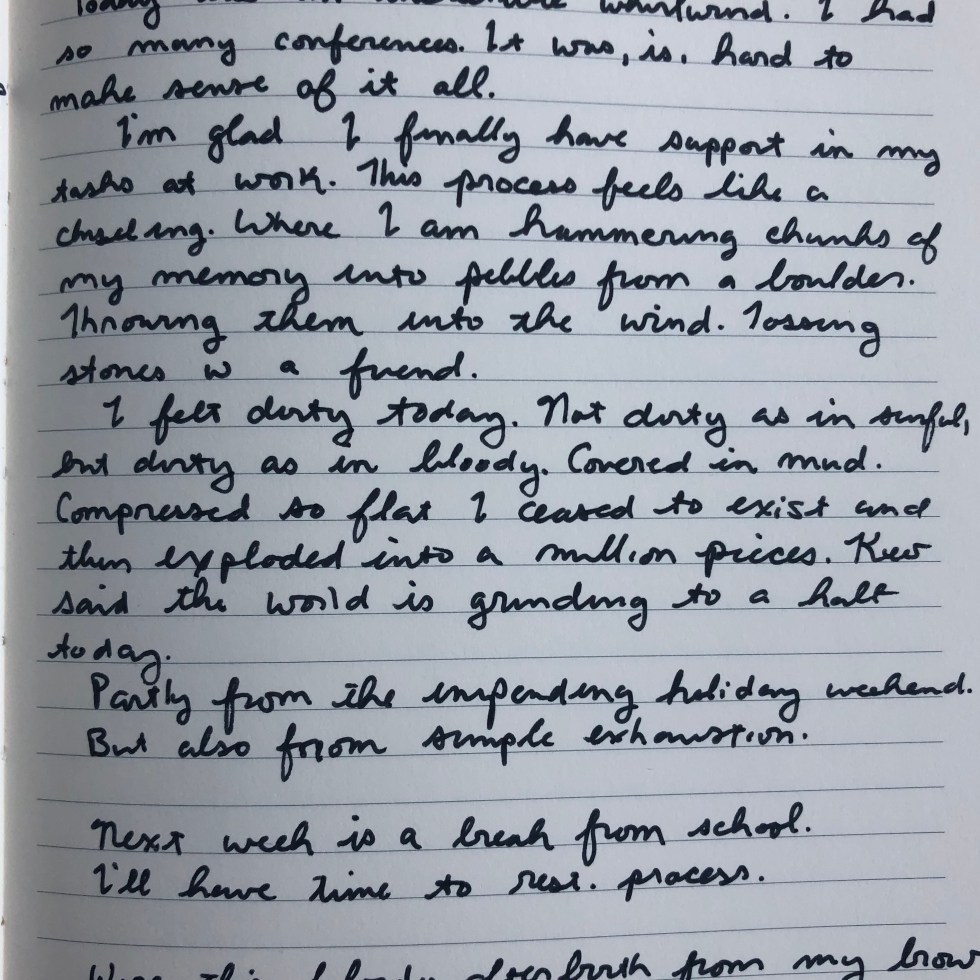 Today whirlwind. I had
so many conferences. It was, is, hard to
make sense of it all.
I'm glad I finally have support in my
tasks at work. This process feels like a
chiseling. Where I am hammering chunks of
my memory into pebbles from a boulder.
Throwing them into the wind. Tossing
stones w a friend.
I felt dirty today. Not dirty as in sinful,
but dirty as in bloody. Covered in mud.
Compressed so flat I ceased to exist and
then exploded into a million pieces. Kev
said the world is grinding to a halt
today.
Partly from the impending holiday weekend.
But also from simple exhaustion.
Next week is a break from school.
I'll have time to rest. process.
Wipe this bloody afterbirth from my brow